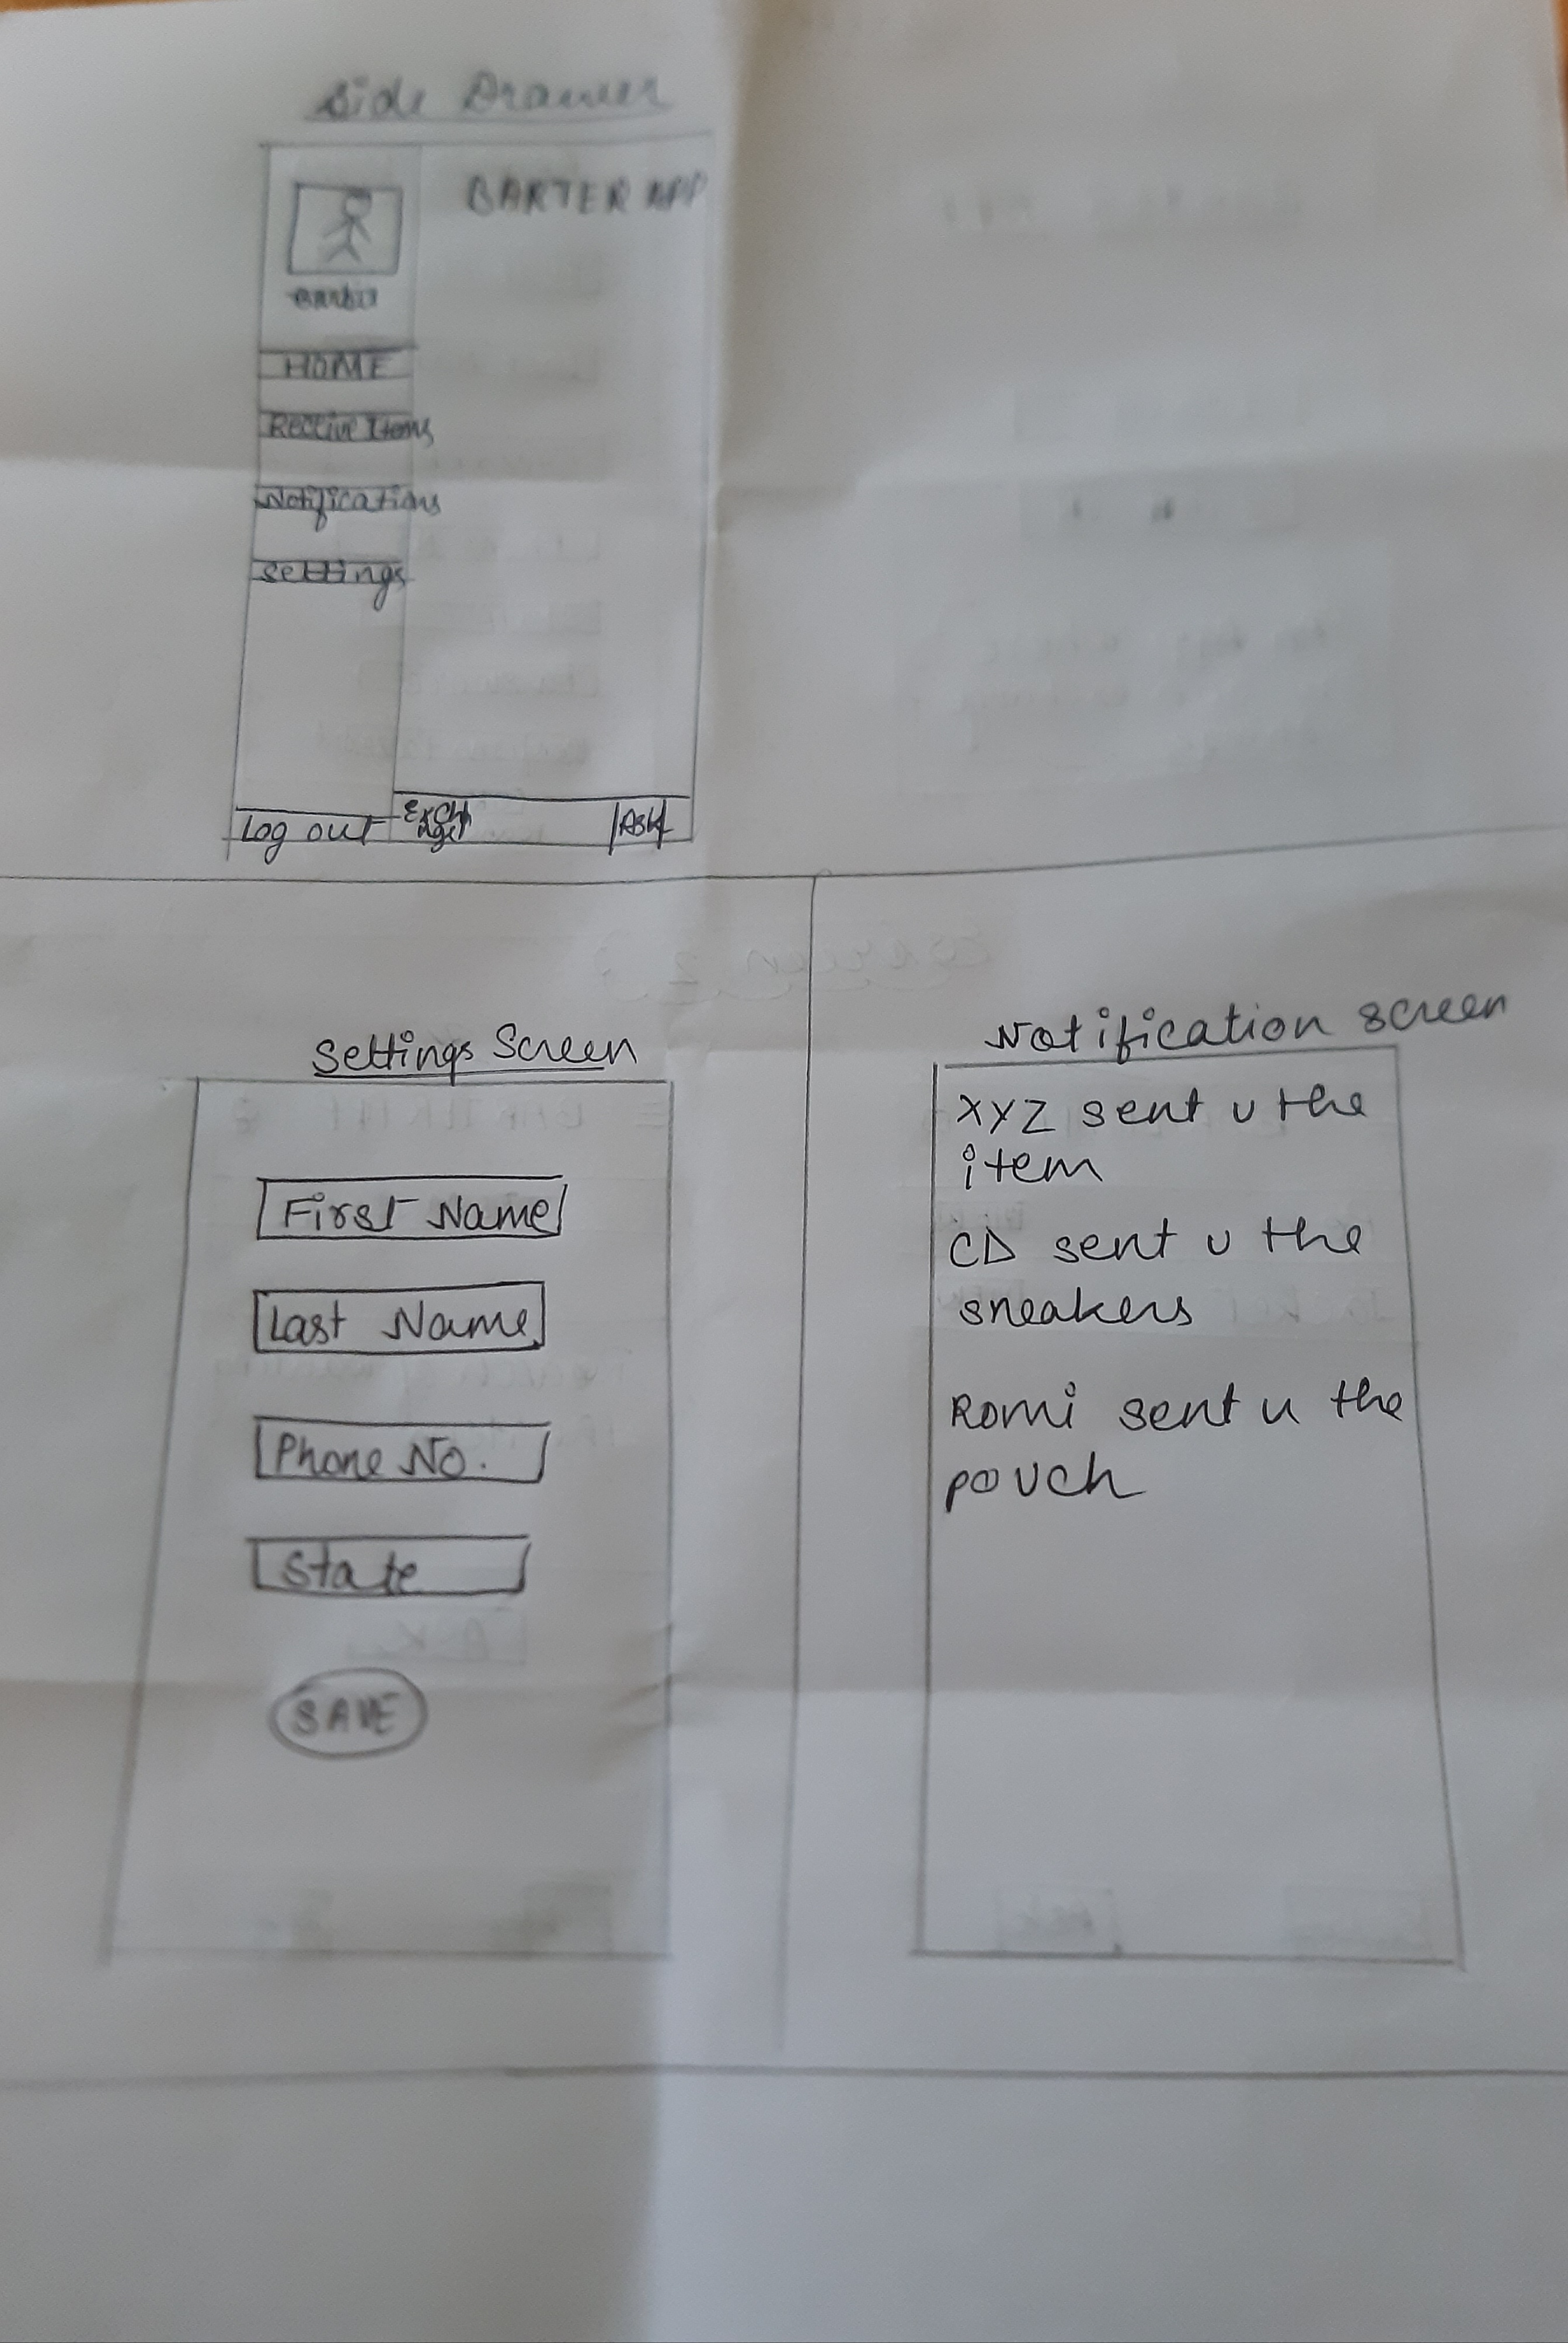 Side Drawer
BARTER APP
HOME
Receive Items
Notifications
Settings
Log out
Exch
nge
Ask
Settings Screen
First Name
Last Name
Phone No.
State
SAVE
Notification screen
XYZ sent u the
item
CD sent u the
sneakers
Romi sent u the
pouch